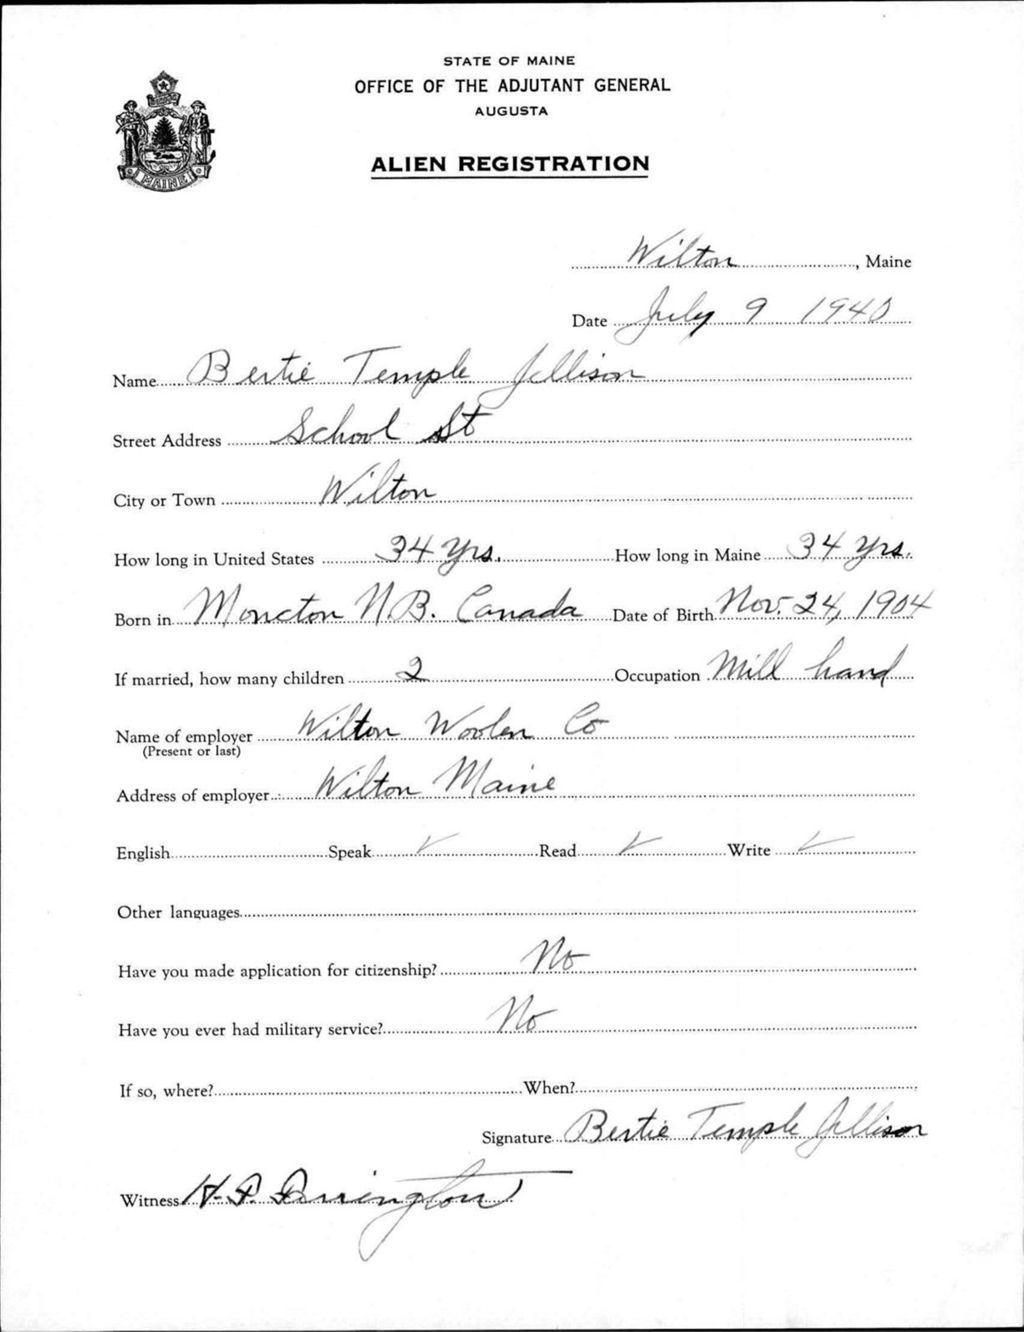 STATE OF MAINE
OFFICE OF THE ADJUTANT GENERAL
AUGUSTA
ALIEN REGISTRATION
MAINE
Wilton, Maine
Date July 9 1940
Name Bertie Temple Jellison
Street Address School St
City or Town Wilton
How long in United States 34 yrs. How long in Maine 34 yrs.
Born in Moncton N.B. Canada Date of Birth Nov. 24, 1904
If married, how many children 2 Occupation Mill hand
Name of employer Wilton Woolen Co
(Present or last)
Address of employer Wilton Maine
English Speak ✓ Read ✓ Write ✓
Other languages
Have you made application for citizenship? No
Have you ever had military service? No
If so, where? When?
Signature Bertie Temple Jellison
Witness H. P.